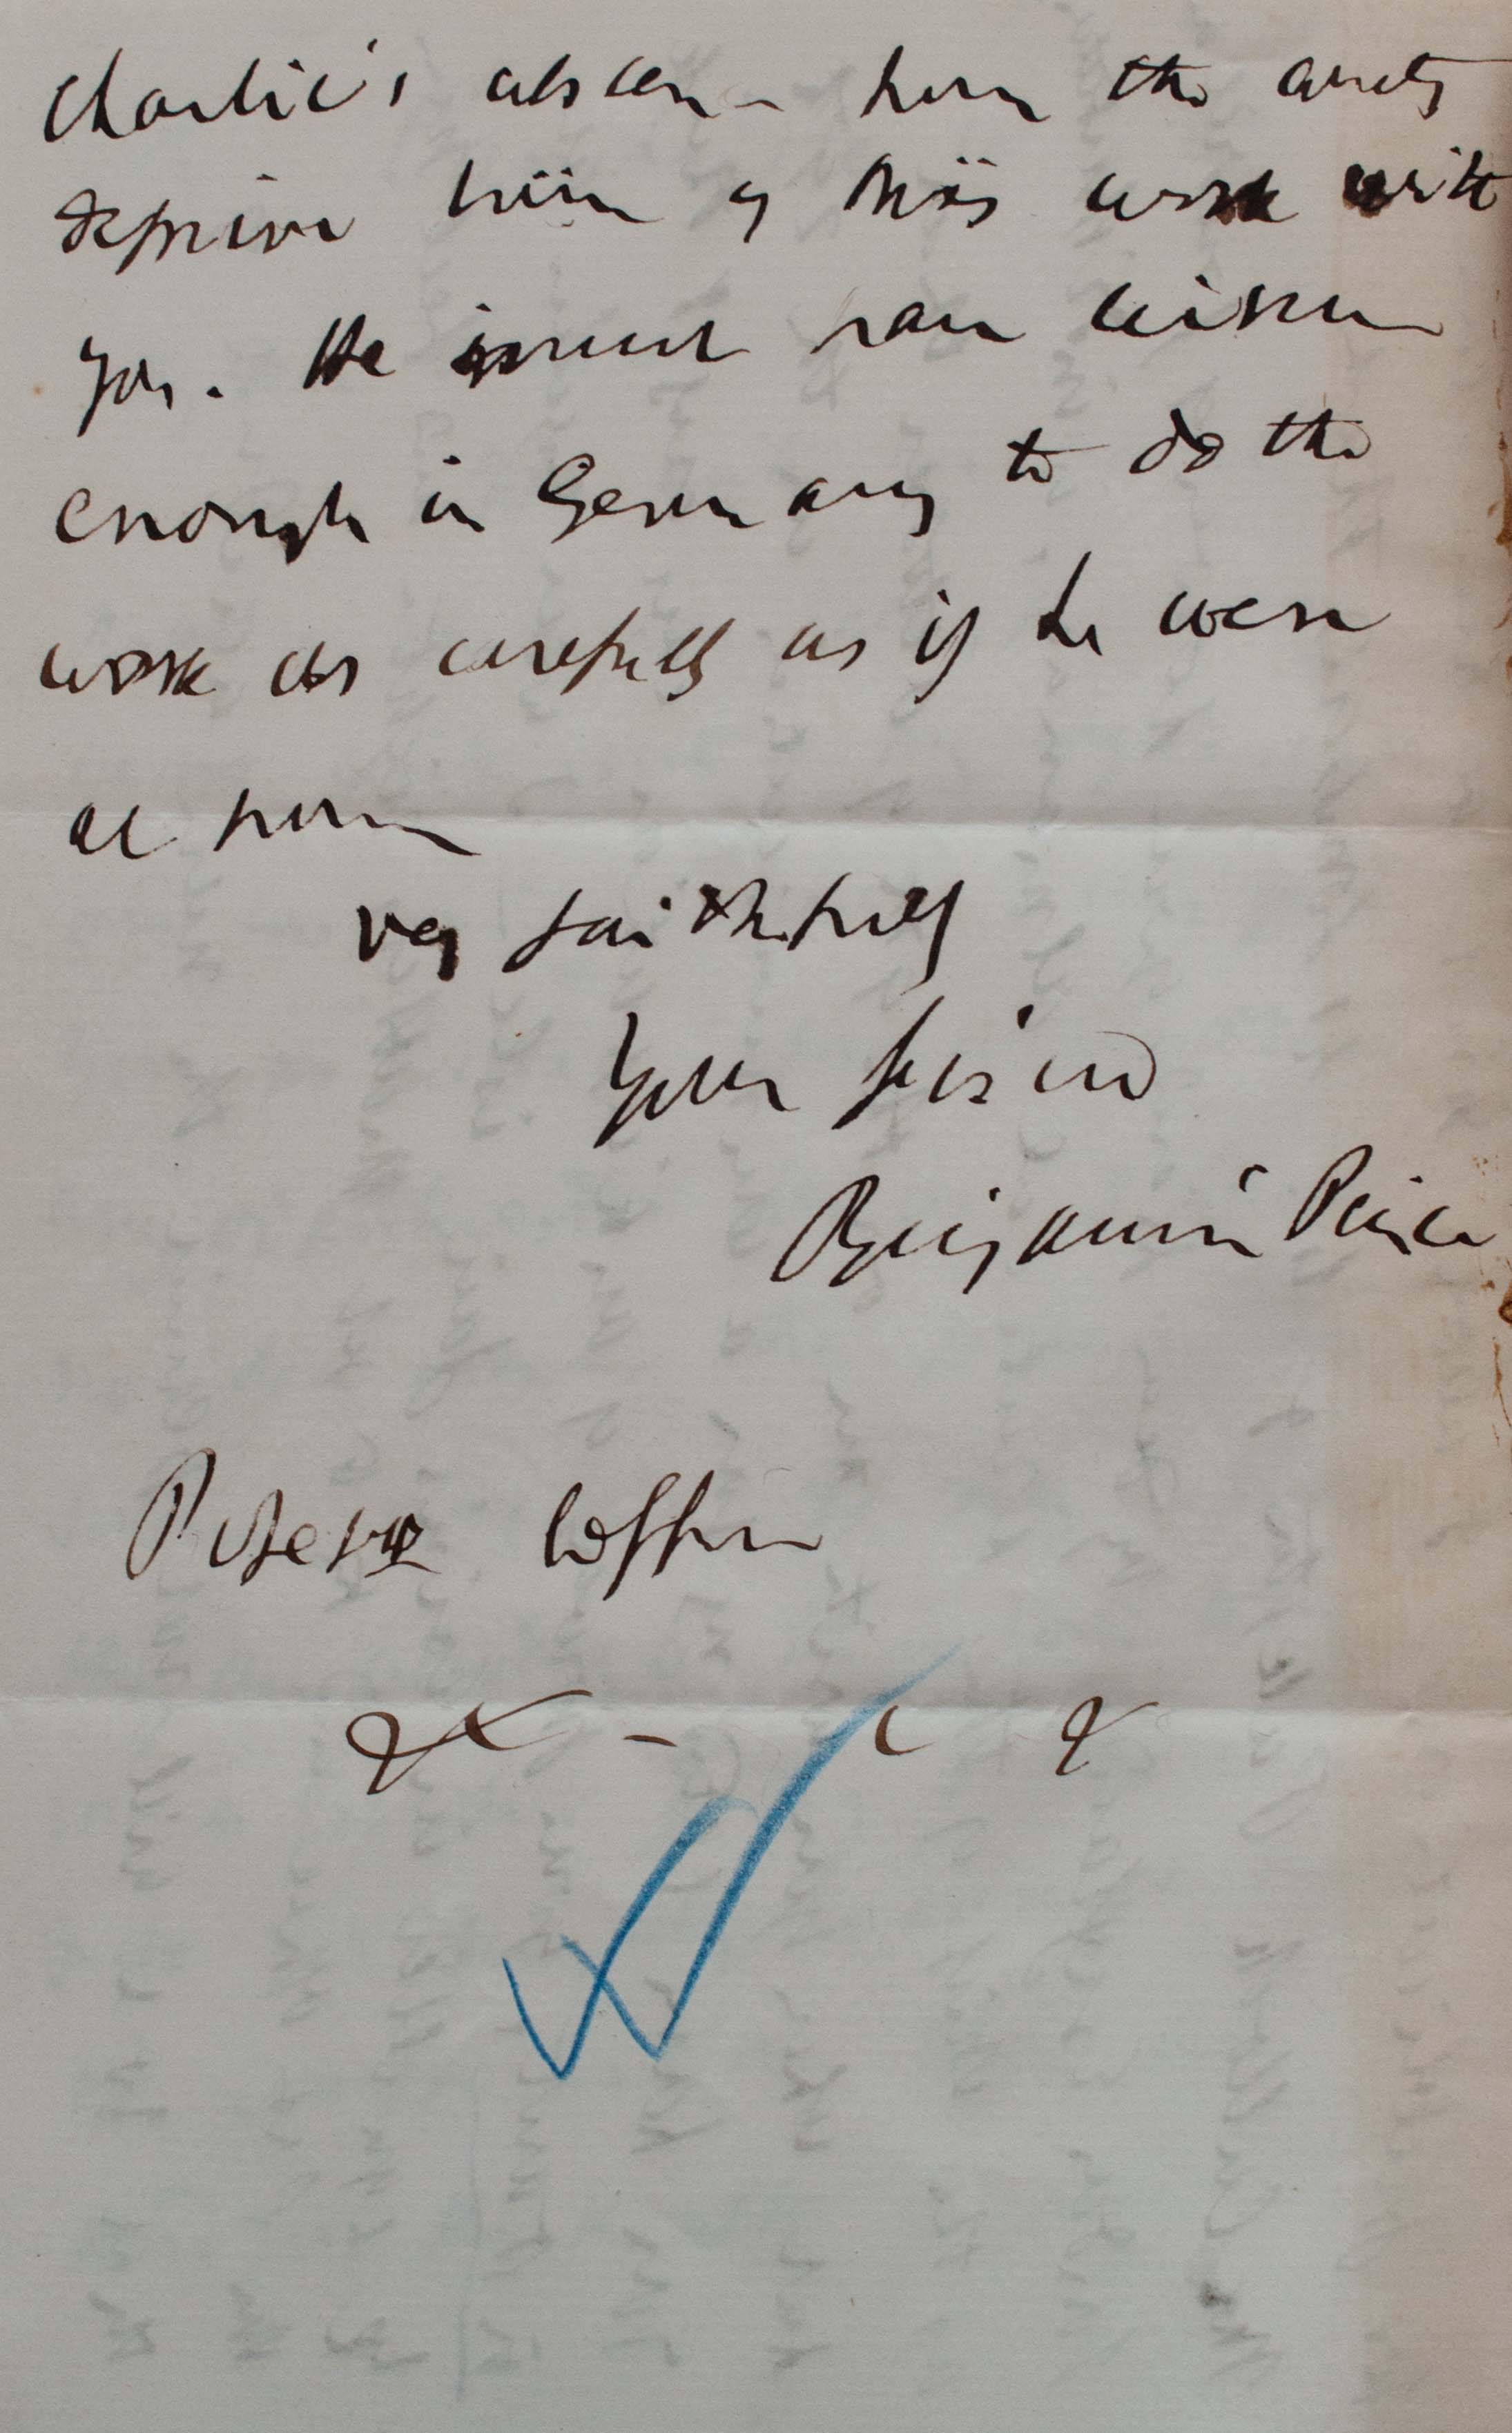 Charlie's absence from the country
deprive him of his work with
you. He must have leisure
enough in Germany to do the
work as carefully as if he were
at home
very faithfully
Your friend
Benjamin Peirce
Coffin